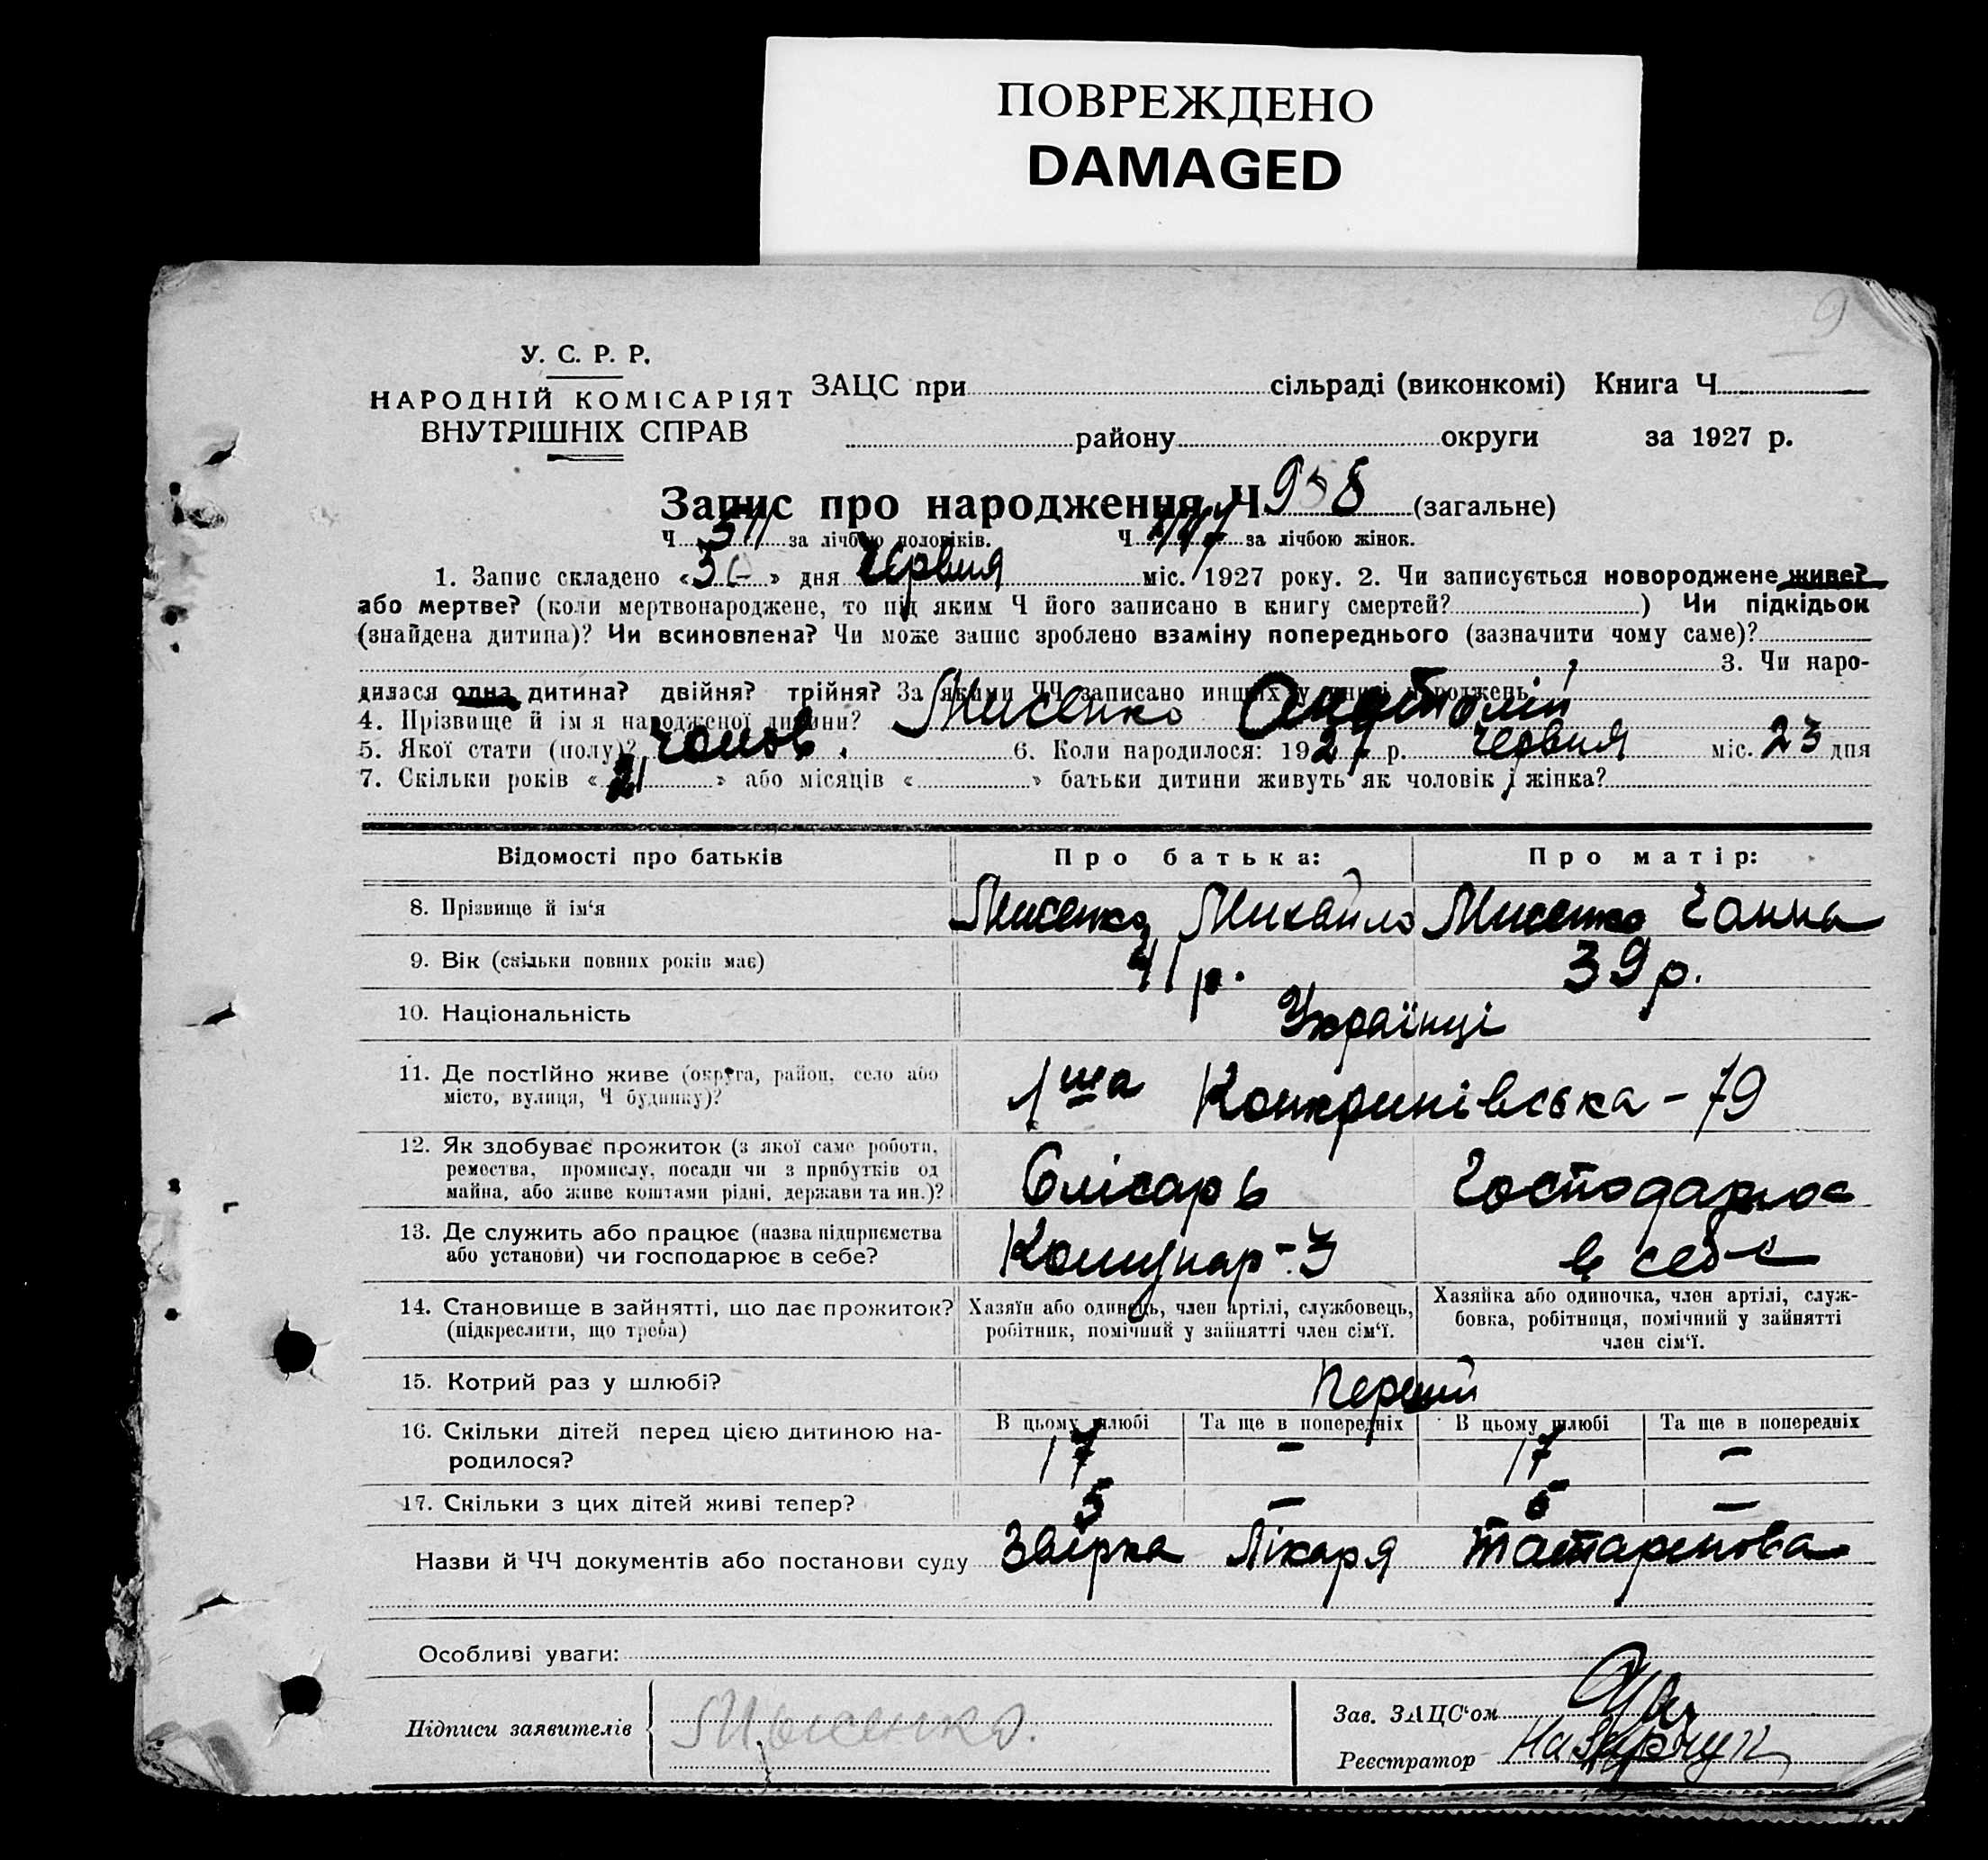 ПОВРЕЖДЕНО
DAMAGED
9
У. С. Р. Р.
НАРОДНІЙ КОМІСАРІЯТ
ВНУТРІШНІХ СПРАВ
ЗАЦС при сільраді (виконкомі) Книга Ч.
району округи за 1927 р.
Запис про народження Ч 958 (загальне)
Ч 511 за лічбою чоловіків. Ч 447 за лічбою жінок.
1. Запис складено «30» дня Червня міс. 1927 року. 2. Чи записується новороджене живе?
або мертве? (коли мертвонароджене, то під яким Ч його записано в книгу смертей? ) Чи підкідьок
(знайдена дитина)? Чи всиновлена? Чи може запис зроблено взаміну попереднього (зазначити чому саме)?
3. Чи наро-
дилася одна дитина? двійня? трійня? За якими ЧЧ записано инших у книзі народжень
4. Прізвище й ім'я народженої дитини? Мисенко Анатолій
5. Якої стати (полу)? чолов. 6. Коли народилося: 1927 р. Червня міс. 23 дня
7. Скільки років «21» або місяців « » батьки дитини живуть як чоловік і жінка?
Відомості про батьків Про батька: Про матір:
8. Прізвище й ім'я Мисенко Михайло Мисенко Ганна
9. Вік (скільки повних років має) 41 р. 39 р.
10. Національність Українці
11. Де постійно живе (округа, район, село або
місто, вулиця, Ч будинку)? 1ша Кондринівська - 79
12. Як здобуває прожиток (з якої саме роботи,
ремества, промислу, посади чи з прибутків од
майна, або живе коштами рідні, держави та ин.)? Слісарь Господарює
13. Де служить або працює (назва підприємства
або установи) чи господарює в себе? Комунар-З в себе
14. Становище в зайнятті, що дає прожиток?
(підкреслити, що треба)
Хазяїн або одинець, член артілі, службовець,
робітник, помічний у зайнятті член сім'ї.
Хазяйка або одиночка, член артілі, служ-
бовка, робітниця, помічний у зайнятті
член сім'ї.
15. Котрий раз у шлюбі? Перший
В цьому шлюбі Та ще в попередніх В цьому шлюбі Та ще в попередніх
16. Скільки дітей перед цією дитиною на-
родилося? 17 — 17 —
17. Скільки з цих дітей живі тепер? 5 — 5 —
Назви й ЧЧ документів або постанови суду Звірка Лікаря Татаринова
Особливі уваги:
Підписи заявителів Мысенко.
Зав. ЗАЦС'ом
Реєстратор Назарчук